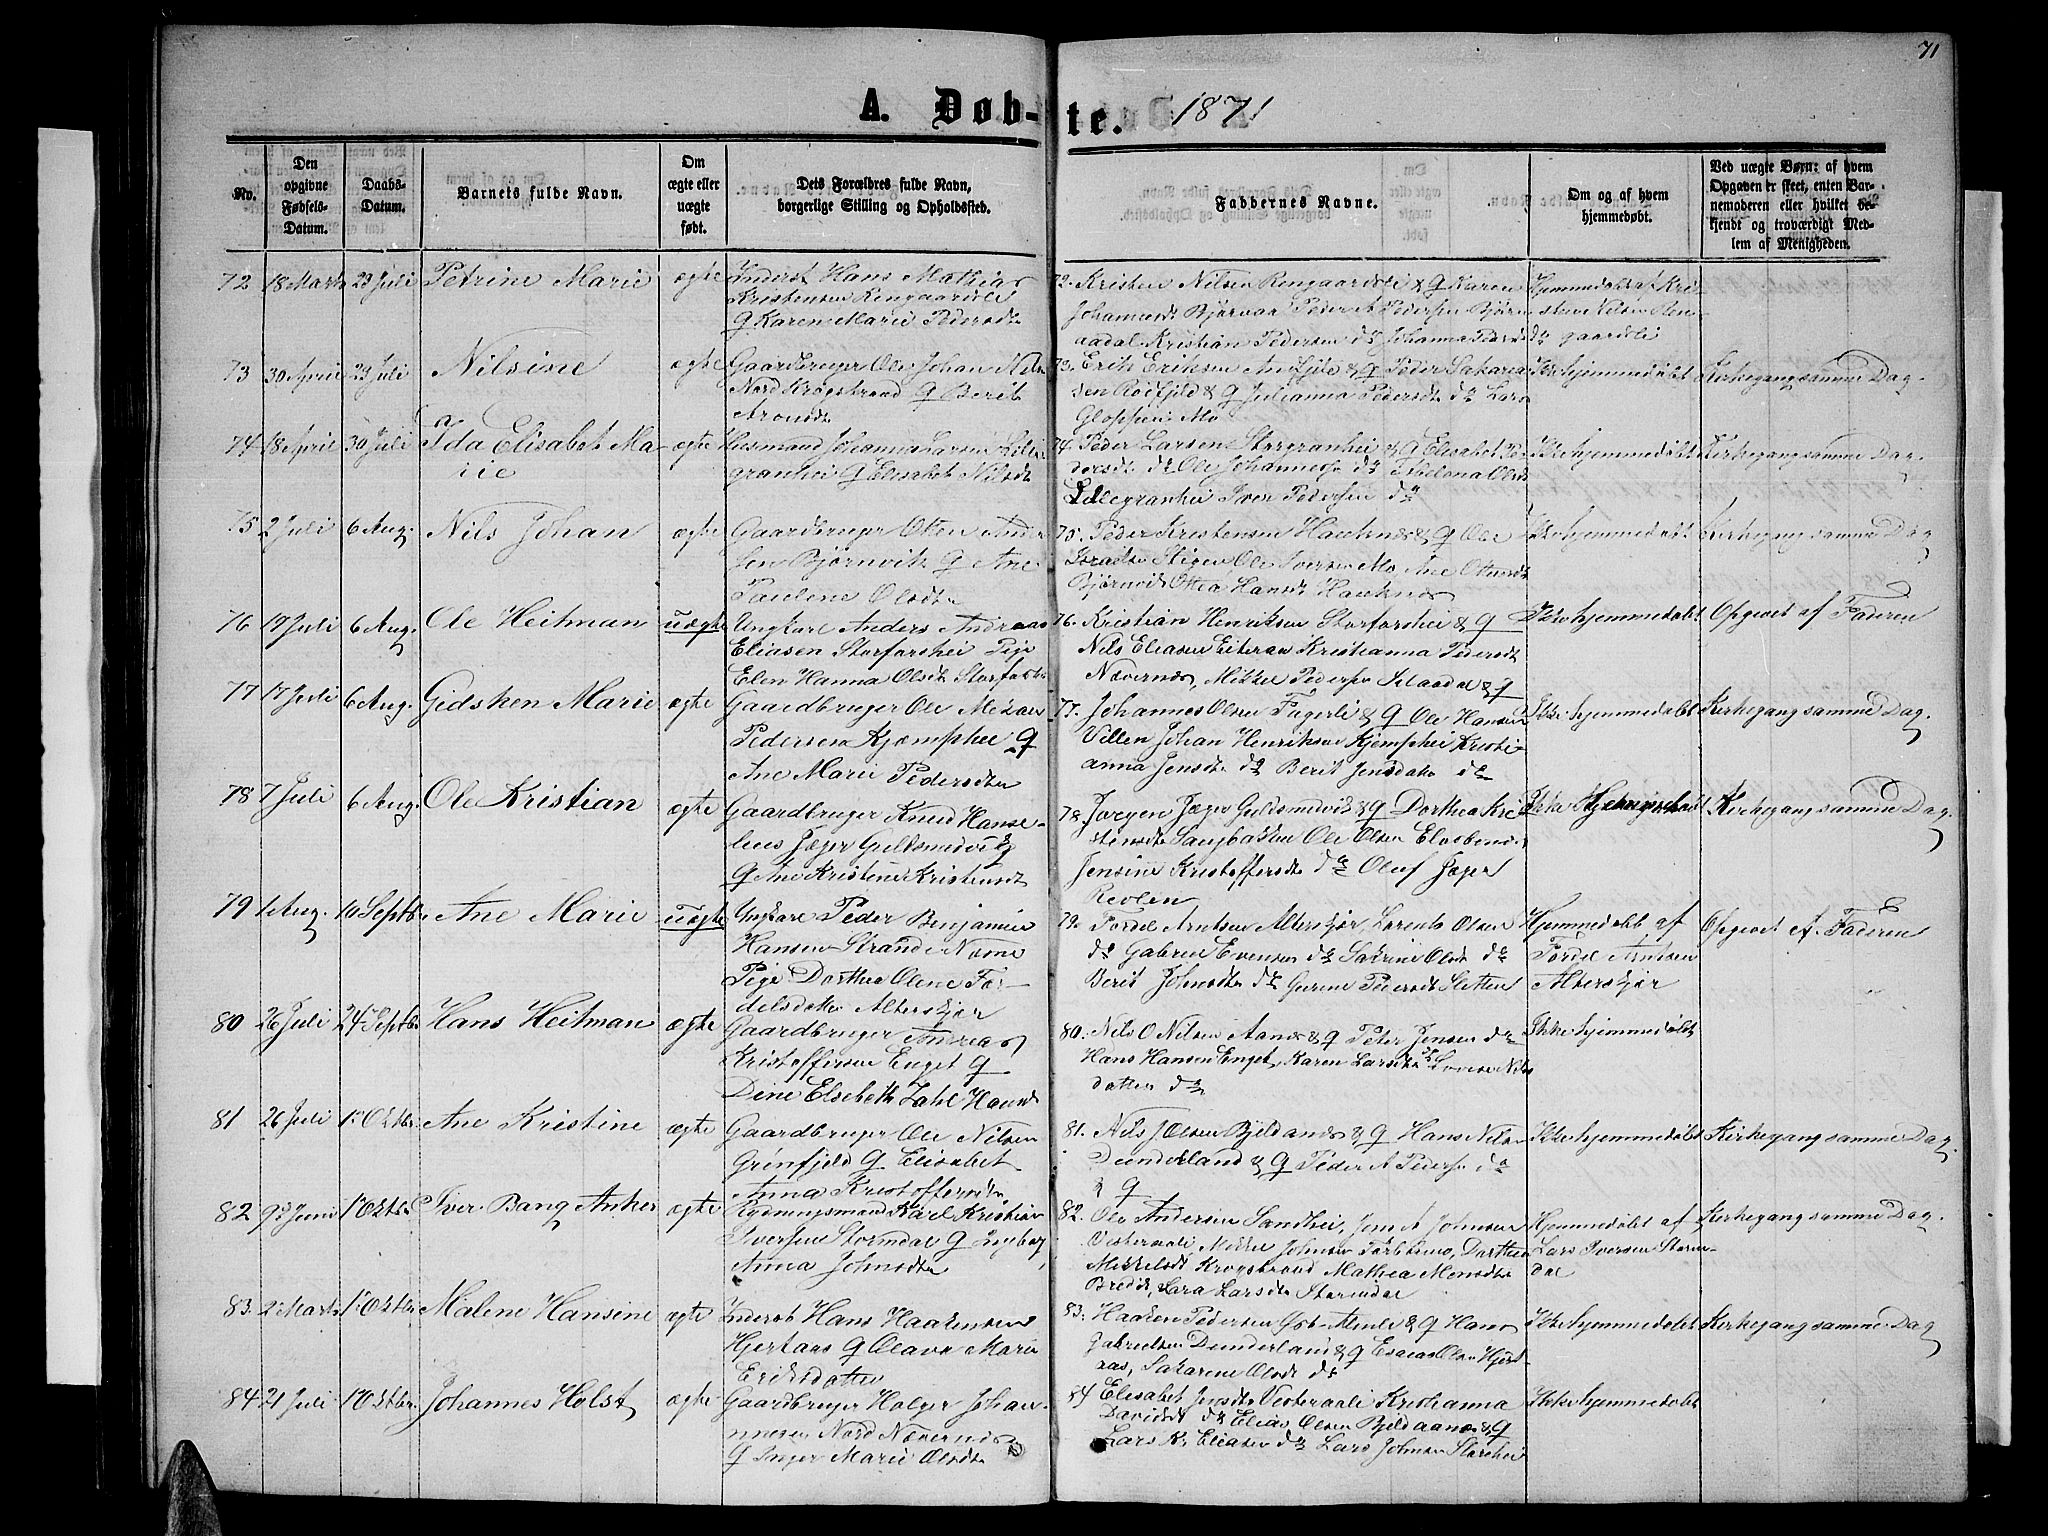 71
A. Døbte. 1871
No.
Den opgivne Fødsels-Datum.
Daabs-Datum.
Barnets fulde Navn.
Om ægte eller uægte født.
Dets Forældres fulde Navn, borgerlige Stilling og Opholdssted.
Faddernes Navne.
Om og af hvem hjemmedøbt.
Ved uægte Børn: af hvem Opgaven er skeet, enten Barnemoderen eller hvilket bekjendt og troværdigt Medlem af Menigheden.
72 18 Marts 23 Juli Petrine Marie ægte Inderst Hans Mathias
Kristensen Rengaardsli
& Karen Marie Pedersdtr
72. Kristen Nilsen Rengaardsli & Karen
Johannesdt Bjørnaa Peder A Pedersen Bjørn-
aadal Kristian Pedersen ds Johanna Pedersdt ds
Hjemmedøbt af Kri-
sten Nilsen Ren-
gaardsli
73 30 April 23 Juli Nilsine ægte Gaardbruger Ole Johan Nils
Nord Krogstrand & Berit
Aronsdt
73. Erik Eriksen & Peder Sakaria-
sen Rødfjeld & Julianna Pedersdt ds Lars
Gloppen Mo
Ikke hjemmedøbt Kirkegang samme Dag.
74 18 April 30 Juli Ida Elisabet Ma-
rie
ægte Husmand Johannes Larsen Lille
granhei & Elisabet Nilsdt
74. Peder Larsen Storgranhei & Elisabet Pe-
dersdt ds Ole Johannesen ds Helena Olsdt
Lillegranhei Iver Pedersen ds
Ikke hjemmedøbt Kirkegang samme Dag.
75 2 Juli 6 Aug. Nils Johan ægte Gaardbruger Otto Ander
sen Bjørnvik & Ane
Pauline Olsdtr
75. Peder Kristensen Hauknes & Ole
Israelsen Stigen Ole Iversen Mo Ane Ottosdt
Bjørnvik Ottea Hansdt Hauknes
Ikke hjemmedøbt Kirkegang samme Dag
76 17 Juli 6 Aug. Ole Heitman uægte Ungkarl Anders Andreas
Eliasen Storforshei Pige
Elen Hanna Olsdt Storforshei
76. Kristian Henriksen Storforshei &
Nils Eliasen Eiteraa Kristianna Pedersdt
Nævernes, Mikkel Pedersen &
Ikke hjemmedøbt Opgivet af Faderen
77 17 Juli 6 Aug. Gidsken Marie ægte Gaardbruger Ole
Pedersen Kjæmphei &
Ane Marie Pedersdtr
77. Johannes Olsen Fagerli & Ole Hansen
Villen Johan Henriksen Kjemphei Kristi-
anna Jensdt ds Berit Jensdatr ds
Ikke hjemmedøbt Kirkegang samme Dag.
78 7 Juli 6 Aug. Ole Kristian ægte Gaardbruger Knud Hanse-
lius Jæger Guldsmedvik
& Ane Kristine Kristensdt
78. Jørgen Jæger Guldsmedvik & Dorthea Kri
stensdt Langbakken Ole Olsen
Jensine Kristoffersdt ds Oluf Jæger
Revlen
Ikke Hjemmedøbt Kirkegang samme Dag.
79 1 Aug. 10 Septb. Ane Marie uægte Ungkarl Peder Benjamin
Hansen Strand Næsne
Pige Dorthea Olene For-
delsdatr Alterskjær
79. Fordel Arntsen Alterskjær, Lorents Olsen
ds Gabriel Evensen ds Sakrine Olsdt ds
Berit Johnsdtr ds Gurine Pedersdt Sletten
Hjemmedøbt af
Fordel Arntsen
Alterskjær
Opgivet af Faderen
80 26 Juli 24 Septb. Hans Heitman ægte Gaardbruger Andreas
Kristoffersen Enget &
Dine Elsebeth Zahl Hansdt
80. Nils O Nilsen Aanes & Peter Jensen ds
Hans Hansen Enget, Karen Larsdtr ds Lovise Nils
datter ds
Ikke hjemmedøbt
81 26 Juli 1 Oktbr Ane Kristine ægte Gaardbruger Ole Nilsen
Grønfjeld & Elisabet
Anna Kristoffersdtr
81. Nils Olsen Bjeldaanes & Hans Nilsen
Dunderland & Peder A Pedersen ds
&
Ikke hjemmedøbt Kirkegang samme Dag.
82 9 Juni 1 Oktbr Iver Bang Anker ægte Rydningsmand Karl Kristian
Iversen Stormdal & Ingeborg
Anna Johnsdtr
82. Ole Andersen Sandhei, Jens A Johnsen
Vesteraali Mikkel Johnsen, Dorthea
Mikkelsdt Krogstrand Mathea Monsdtr
Bredik, Lara Larsdtr Stormdal
Hjemmedøbt af
Lars Iversen Storm-
dal
Kirkegang samme Dag.
83. 2 Marts 1 Oktbr Malene Hansine ægte Inderst Hans Haakensen
Hjertaas & Olava Marie
Eriksdatter
83. Haaken Pedersen Øst- & Hans
Gabrielsen Dunderland & Esaias Olsen Hjert-
aas, Sakarine Olsdt ds
Ikke hjemmedøbt Kirkegang samme Dag
84 21 Juli 1 Oktbr. Johannes Holst ægte Gaardbruger Holger Johan-
nesen Nord Nævernes
& Inger Marie Olsdtr
84 Elisabet Jensdtr Vesteraali Kristianna
Davidsdt ds Elias Olsen Bjeldaanes &
Lars K. Eliasen ds Lars Johnsen Storhei
Ikke hjemmedøbt